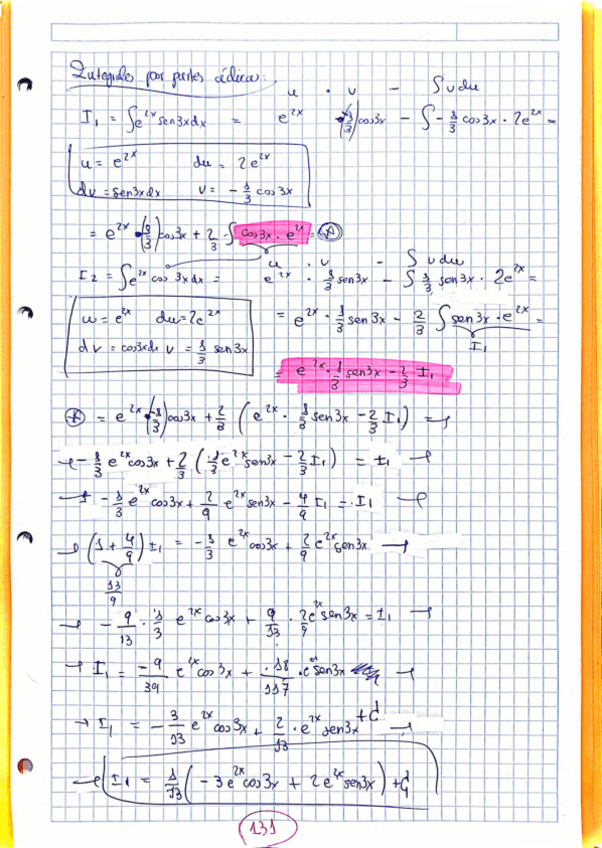 Integrales por partes cíclicas:
u · v − ∫ v du
I₁ = ∫e^{2x} sen3x dx = e^{2x} (-1/3) cos3x − ∫ -1/3 cos3x · 2e^{2x} =
u = e^{2x} du = 2e^{2x}
dv = sen3x dx v = -1/3 cos3x
= e^{2x} · (-1/3) cos3x + 2/3 · ∫ cos3x · e^{2x} = (*)
u · v − ∫ v du
I₂ = ∫e^{2x} cos 3x dx = e^{2x} · 1/3 sen3x − ∫ 1/3 sen3x · 2e^{2x} =
u = e^{2x} du = 2e^{2x} = e^{2x} · 1/3 sen3x − 2/3 ∫ sen3x · e^{2x} =
dv = cos3x dx v = 1/3 sen3x I₁
= e^{2x} · 1/3 sen3x − 2/3 I₁
(*) = e^{2x} · (-1/3) cos3x + 2/3 (e^{2x} · 1/3 sen3x − 2/3 I₁) = →
→ -1/3 e^{2x} cos3x + 2/3 (1/3 e^{2x} sen3x − 2/3 I₁) = I₁ →
→ -1/3 e^{2x} cos3x + 2/9 e^{2x} sen3x − 4/9 I₁ = I₁ →
→ (1 + 4/9) I₁ = -1/3 e^{2x} cos3x + 2/9 e^{2x} sen3x →
13/9
→ -9/13 · 1/3 e^{2x} cos3x + 9/13 · 2/9 e^{2x} sen3x = I₁ →
→ I₁ = -9/39 e^{2x} cos3x + 18/117 · e^{2x} sen3x →
→ I₁ = -3/13 e^{2x} cos3x + 2/13 · e^{2x} sen3x + C →
→ I₁ = 1/13 (-3e^{2x} cos3x + 2e^{2x} sen3x) + C
131